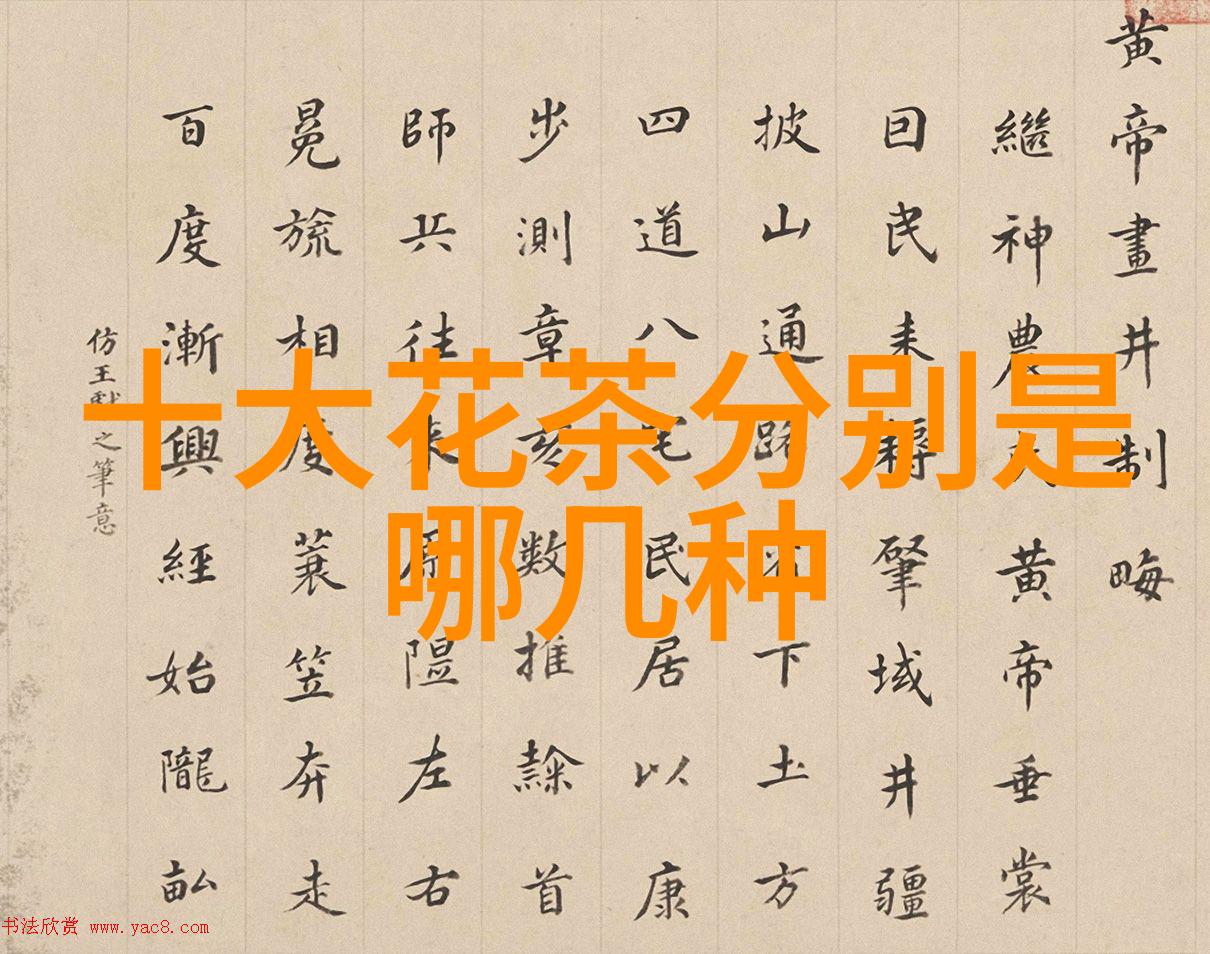 十大花茶分别是
哪几种
黄帝畫井制畮
繼神農大黄帝垂裳
囙民耒耨肈域井疆
披山通路
下土方
四道八宅民居以康
步測章亥数推隸首
師兵往来原隰左右
冕旒相度蓑笠奔走
百度漸興經始隴畝
仿王獻之筆意
书法欣赏 www.yac8.com